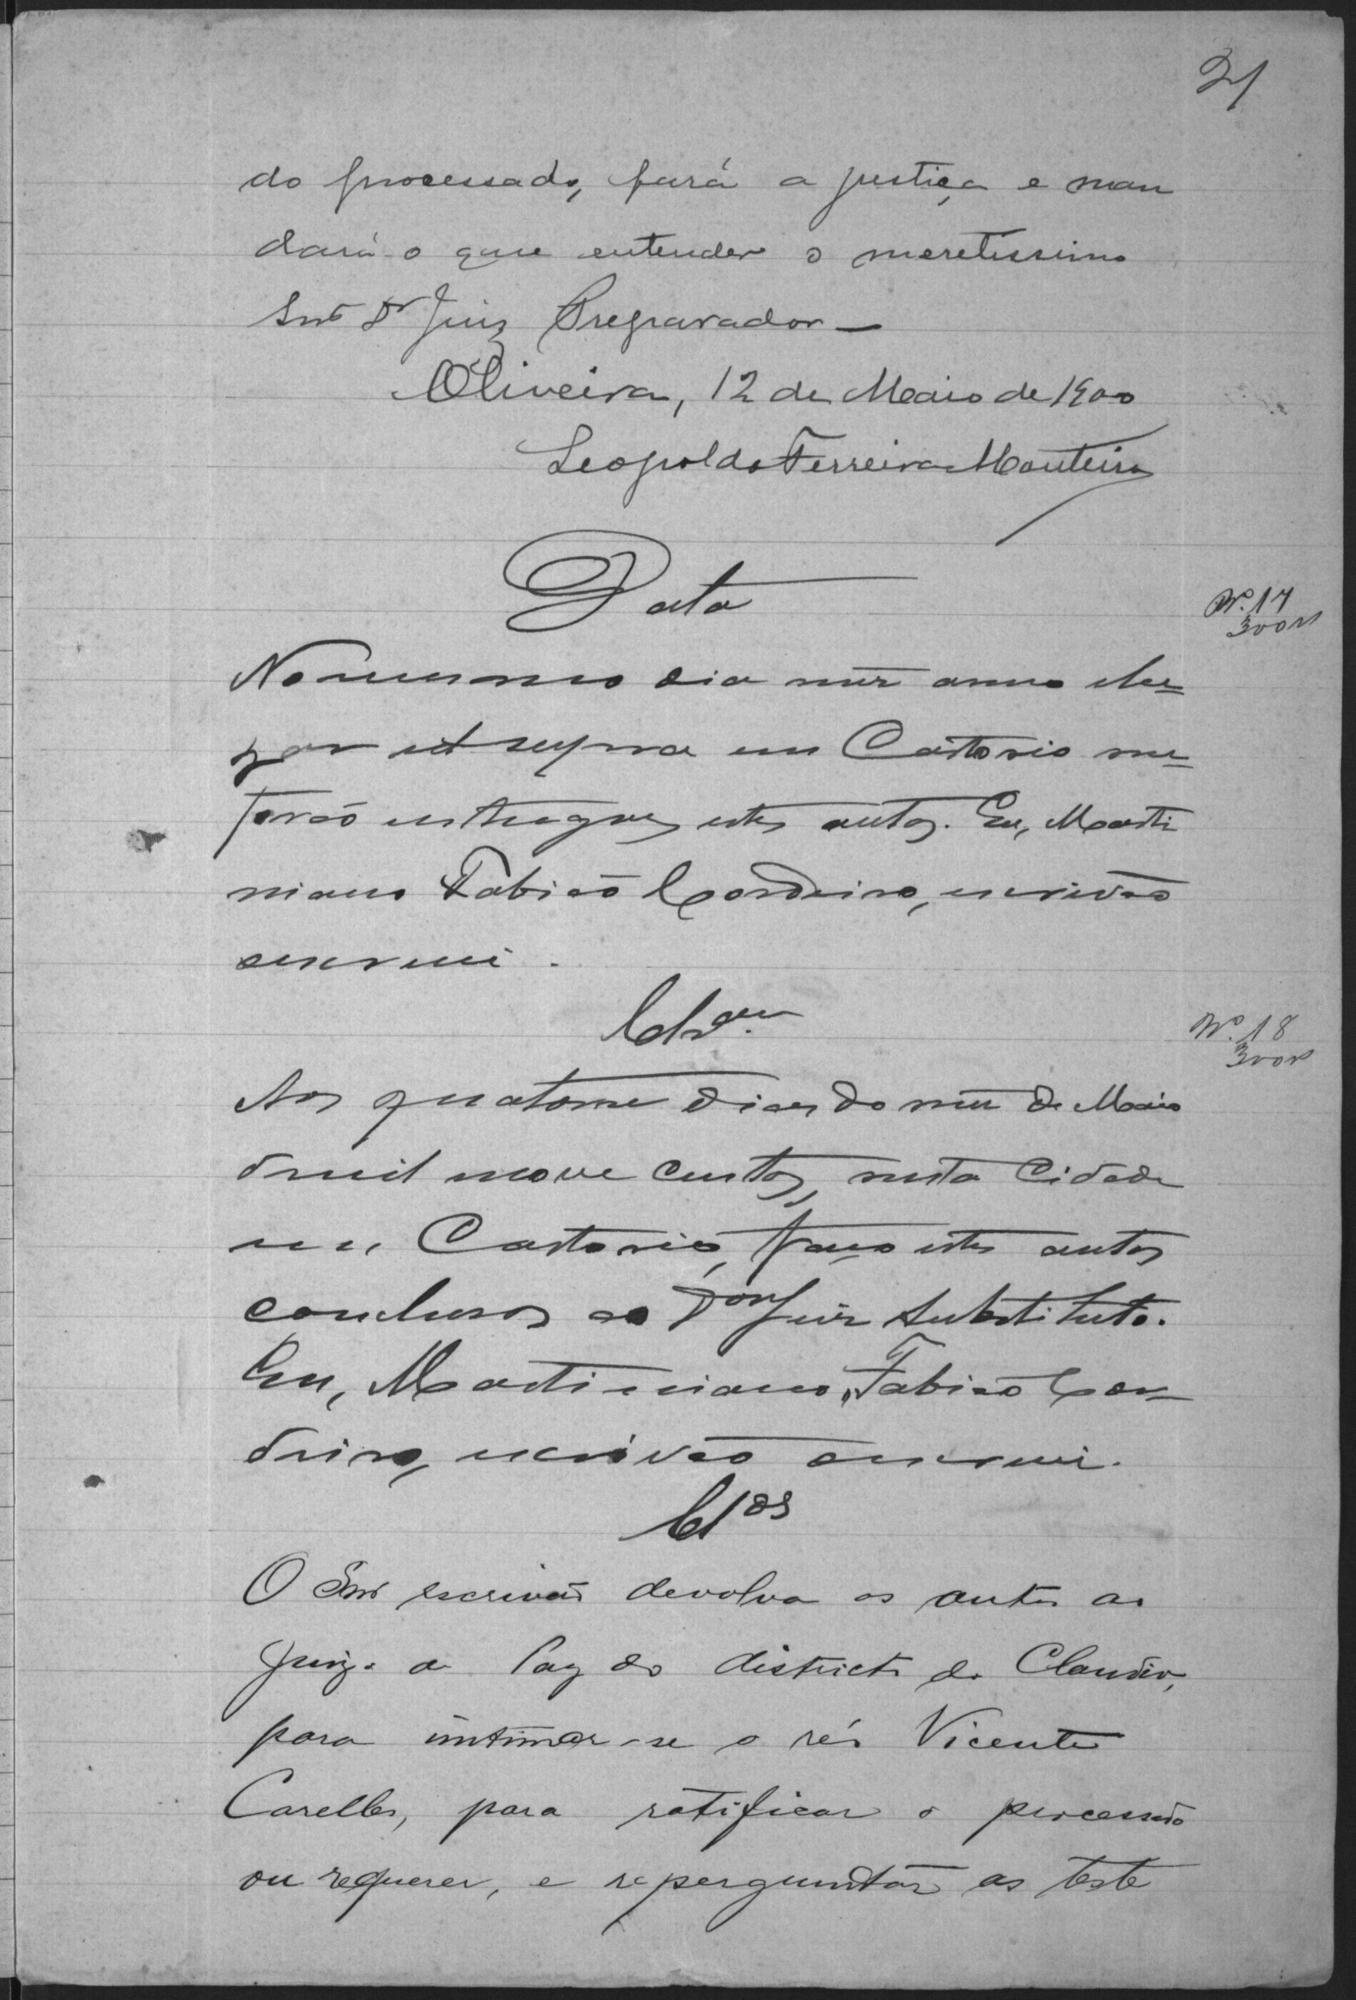 21
do processado, fará a justiça e man
dará o que entender o meretissimo
Snr Dr Juiz Preparador —
Oliveira, 12 de Maio de 1900
Leopoldo Ferreira Monteiro
Data
Nº 17
300 rs
No mesmo dia mez anno elu=
gar ut supra em Cartorio me=
forão entregues estes autos. Eu, Marti
niano Fabião Cordeiro, escrivão
escrevi.
Clsam
Nº 18
300 rs
Aos quatorze dias do mez de Maio
de mil nove centos, nesta Cidade
em Cartorio, faço estes autos
conclusos ao Dor Juiz Substituto.
Eu, Martiniano Fabião Cor-
deiro, escrivão escrevi.
Clos
O Snr escrivão devolva os autos ao
Juiz de Paz do districto do Claudio,
para intimar-se o réo Vicente
Carelles, para ratificar o processado
ou requerer, e reperguntar as teste